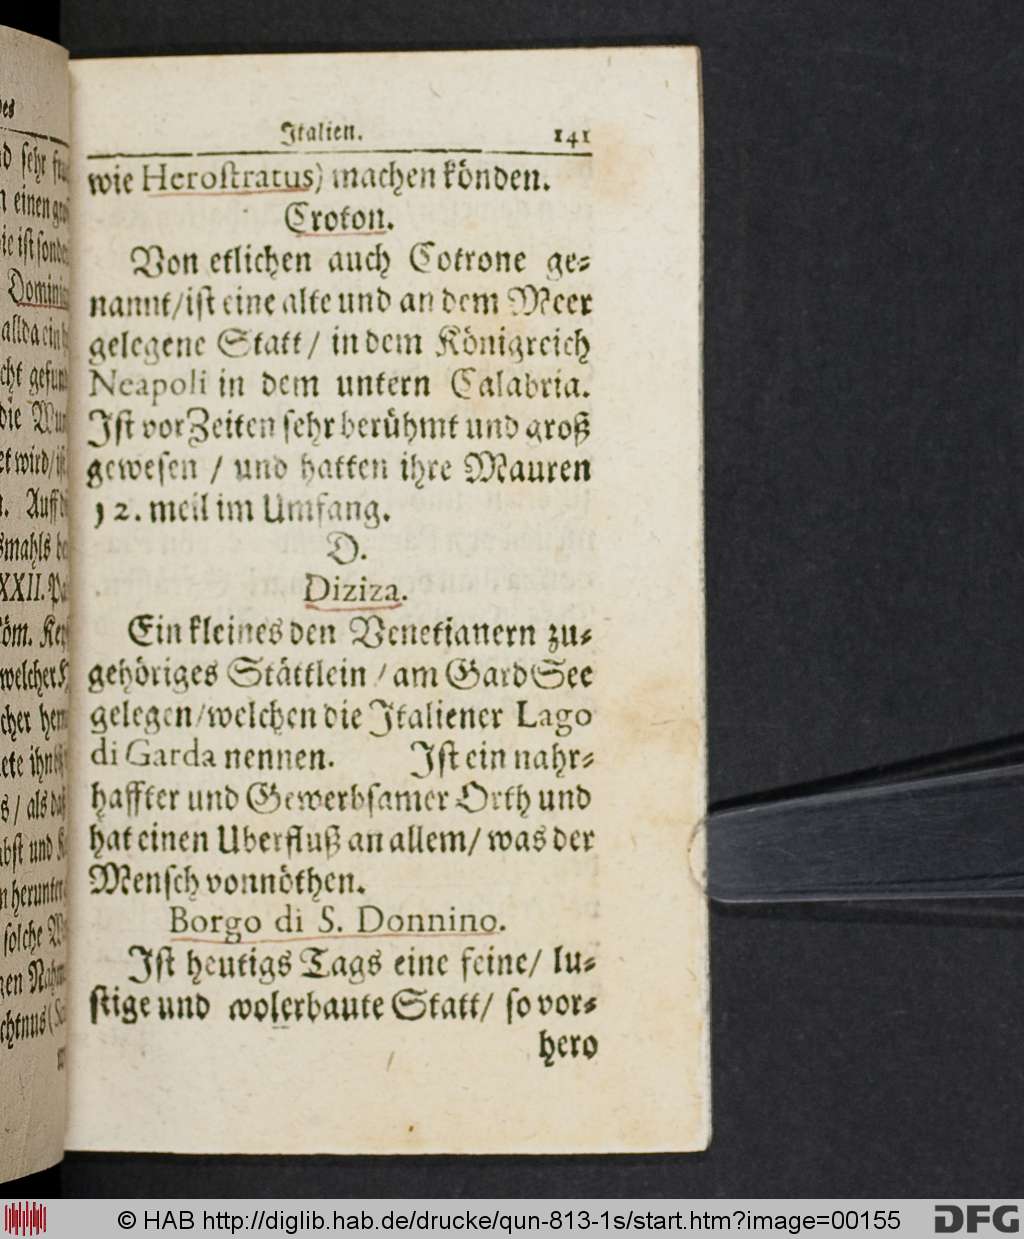 Italien. 141
wie Herostratus) machen könden.
Croton.
Von etlichen auch Cotrone ge-
nannt/ ist eine alte und an dem Meer
gelegene Statt/ in dem Königreich
Neapoli in dem untern Calabria.
Ist vor Zeiten sehr berühmt und groß
gewesen / und hatten ihre Mauren
12. meil im Umfang.
D.
Diziza.
Ein kleines den Venetianern zu-
gehöriges Stättlein / am Gard See
gelegen/ welchen die Italiener Lago
di Garda nennen. Ist ein nahr-
haffter und Gewerbsamer Orth und
hat einen Uberfluß an allem/ was der
Mensch vonnöthen.
Borgo di S. Donnino.
Ist heutigs Tags eine feine/ lu-
stige und wolerbaute Statt/ so vor-
hero
© HAB http://diglib.hab.de/drucke/qun-813-1s/start.htm?image=00155 DFG